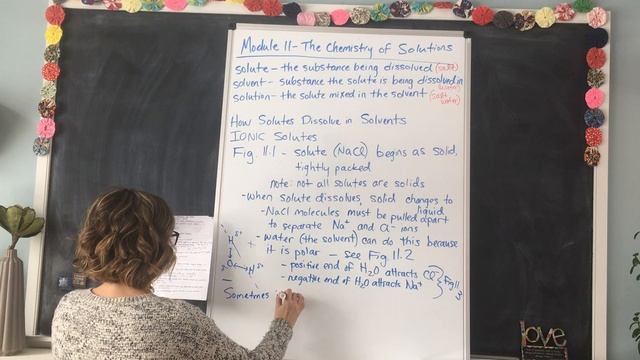 Module 11 - The Chemistry of Solutions
solute - the substance being dissolved (salt)
solvent - substance the solute is being dissolved in
(water)
solution - the solute mixed in the solvent (salt water)
How Solutes Dissolve in Solvents
IONIC SOLUTES
Fig. 11.1 - solute (NaCl) begins as solid,
tightly packed
note: not all solutes are solids
- when solute dissolves, solid changes to liquid
- NaCl molecules must be pulled apart
to separate Na+ and Cl- ions
- water (the solvent) can do this because
it is polar - see Fig 11.2
- positive end of H2O attracts Cl-
- negative end of H2O attracts Na+
} Fig 11.3
H δ+
O H δ+
Sometimes
love